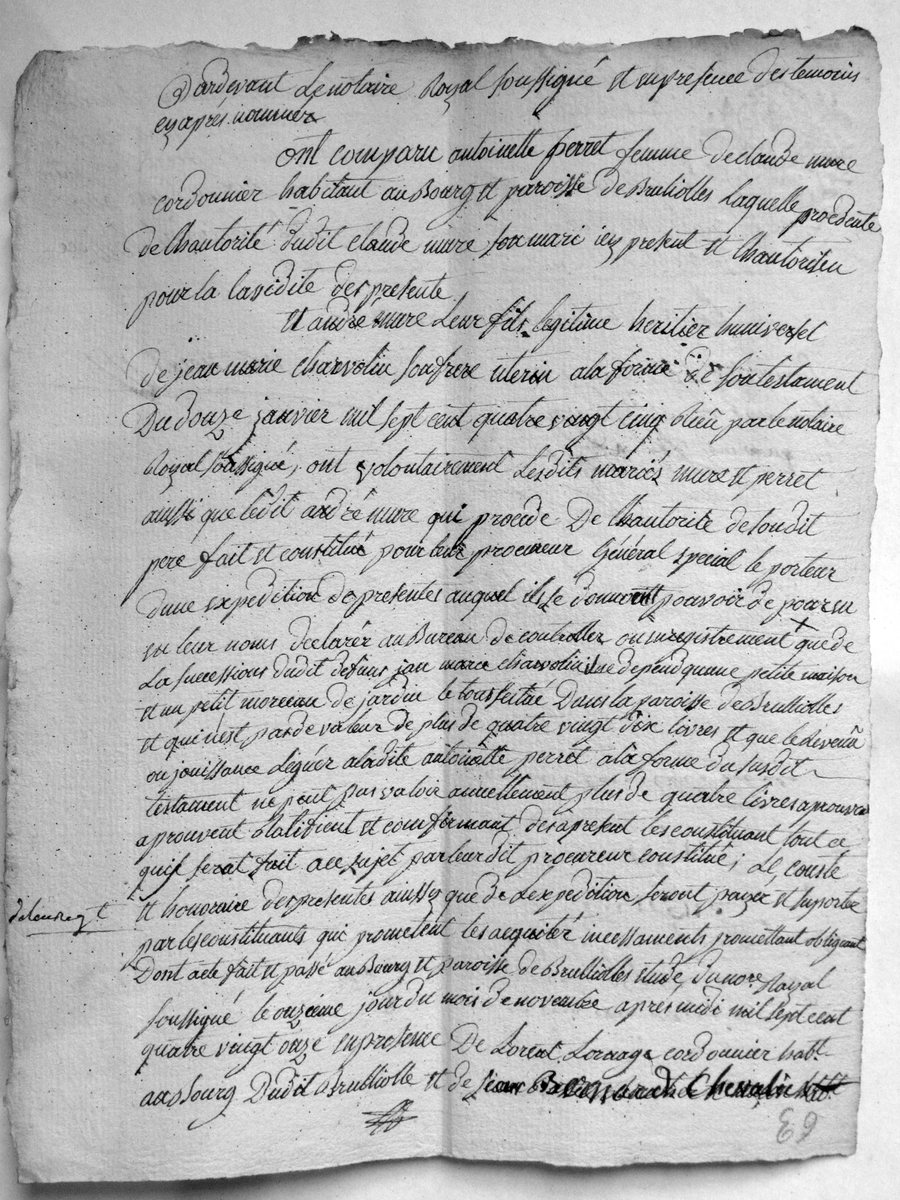 Pardevant Le notaire Royal soussigné et en presence des temoins
cy apres nommés
ont comparu antoinette perret femme de claude mure
cordonnier habitant au Bourg et paroisse de Brulliolles laquelle procedente
de Lhautorité dudit claude mure son mari icy present et Lhautorisen
pour la lavidite des presente
et andré mure Leur fils legitime heritier huniversel
de jean marie charvolin son frere uterin a la forme de son testament
Du douze janvier mil sept cent quatre vingt cinq Reçu par le notaire
Royal soussigné, ont volontairement Lesdits mariés mure et perret
aussi que ledit andré mure qui procede De Lhautorité de soudit
pere fait et constitué pour leur procureur Général special le porteur
dune expedition des presentes auquel ils se donnent pouvoir de pour eu
en leur noms declarér au Bureau de controller ou enregistrement que de
La successions dudit defunt jean marie charvolin il ne depend qunne petite maison
et un petit morceau de jardin le tout scitué Dans la paroisse de Brulliolles
et qui n'est pas de valeur de plus de quatre vingt dix livres et que le revenû
ou jouissance Léguér a ladite antoinette perret a la forme du susdit
testament ne peut pas valoir annuellement plus de quatre livres
aprouvent Ratifient et confirmant des apresent les constituant tout ce
quil serat fait a ce sujet par leur dit procureur constitué; Le couste
et honoraire des presentes aussy que de Lexpedition seront payer et suporter
par les constituants qui promettent les acquiter incessaments promettant obligeant
Dont acte fait et passé au Bourg et paroisse de Brulliolles etude du nore. Royal
soussigné le onzieme jour du mois de novembre apres midi mil sept cent
quatre vingt onze en presence De cordonnier habt.
au Bourg Dudit Brulliolle et de Jean Bernard Chevalie habt
69